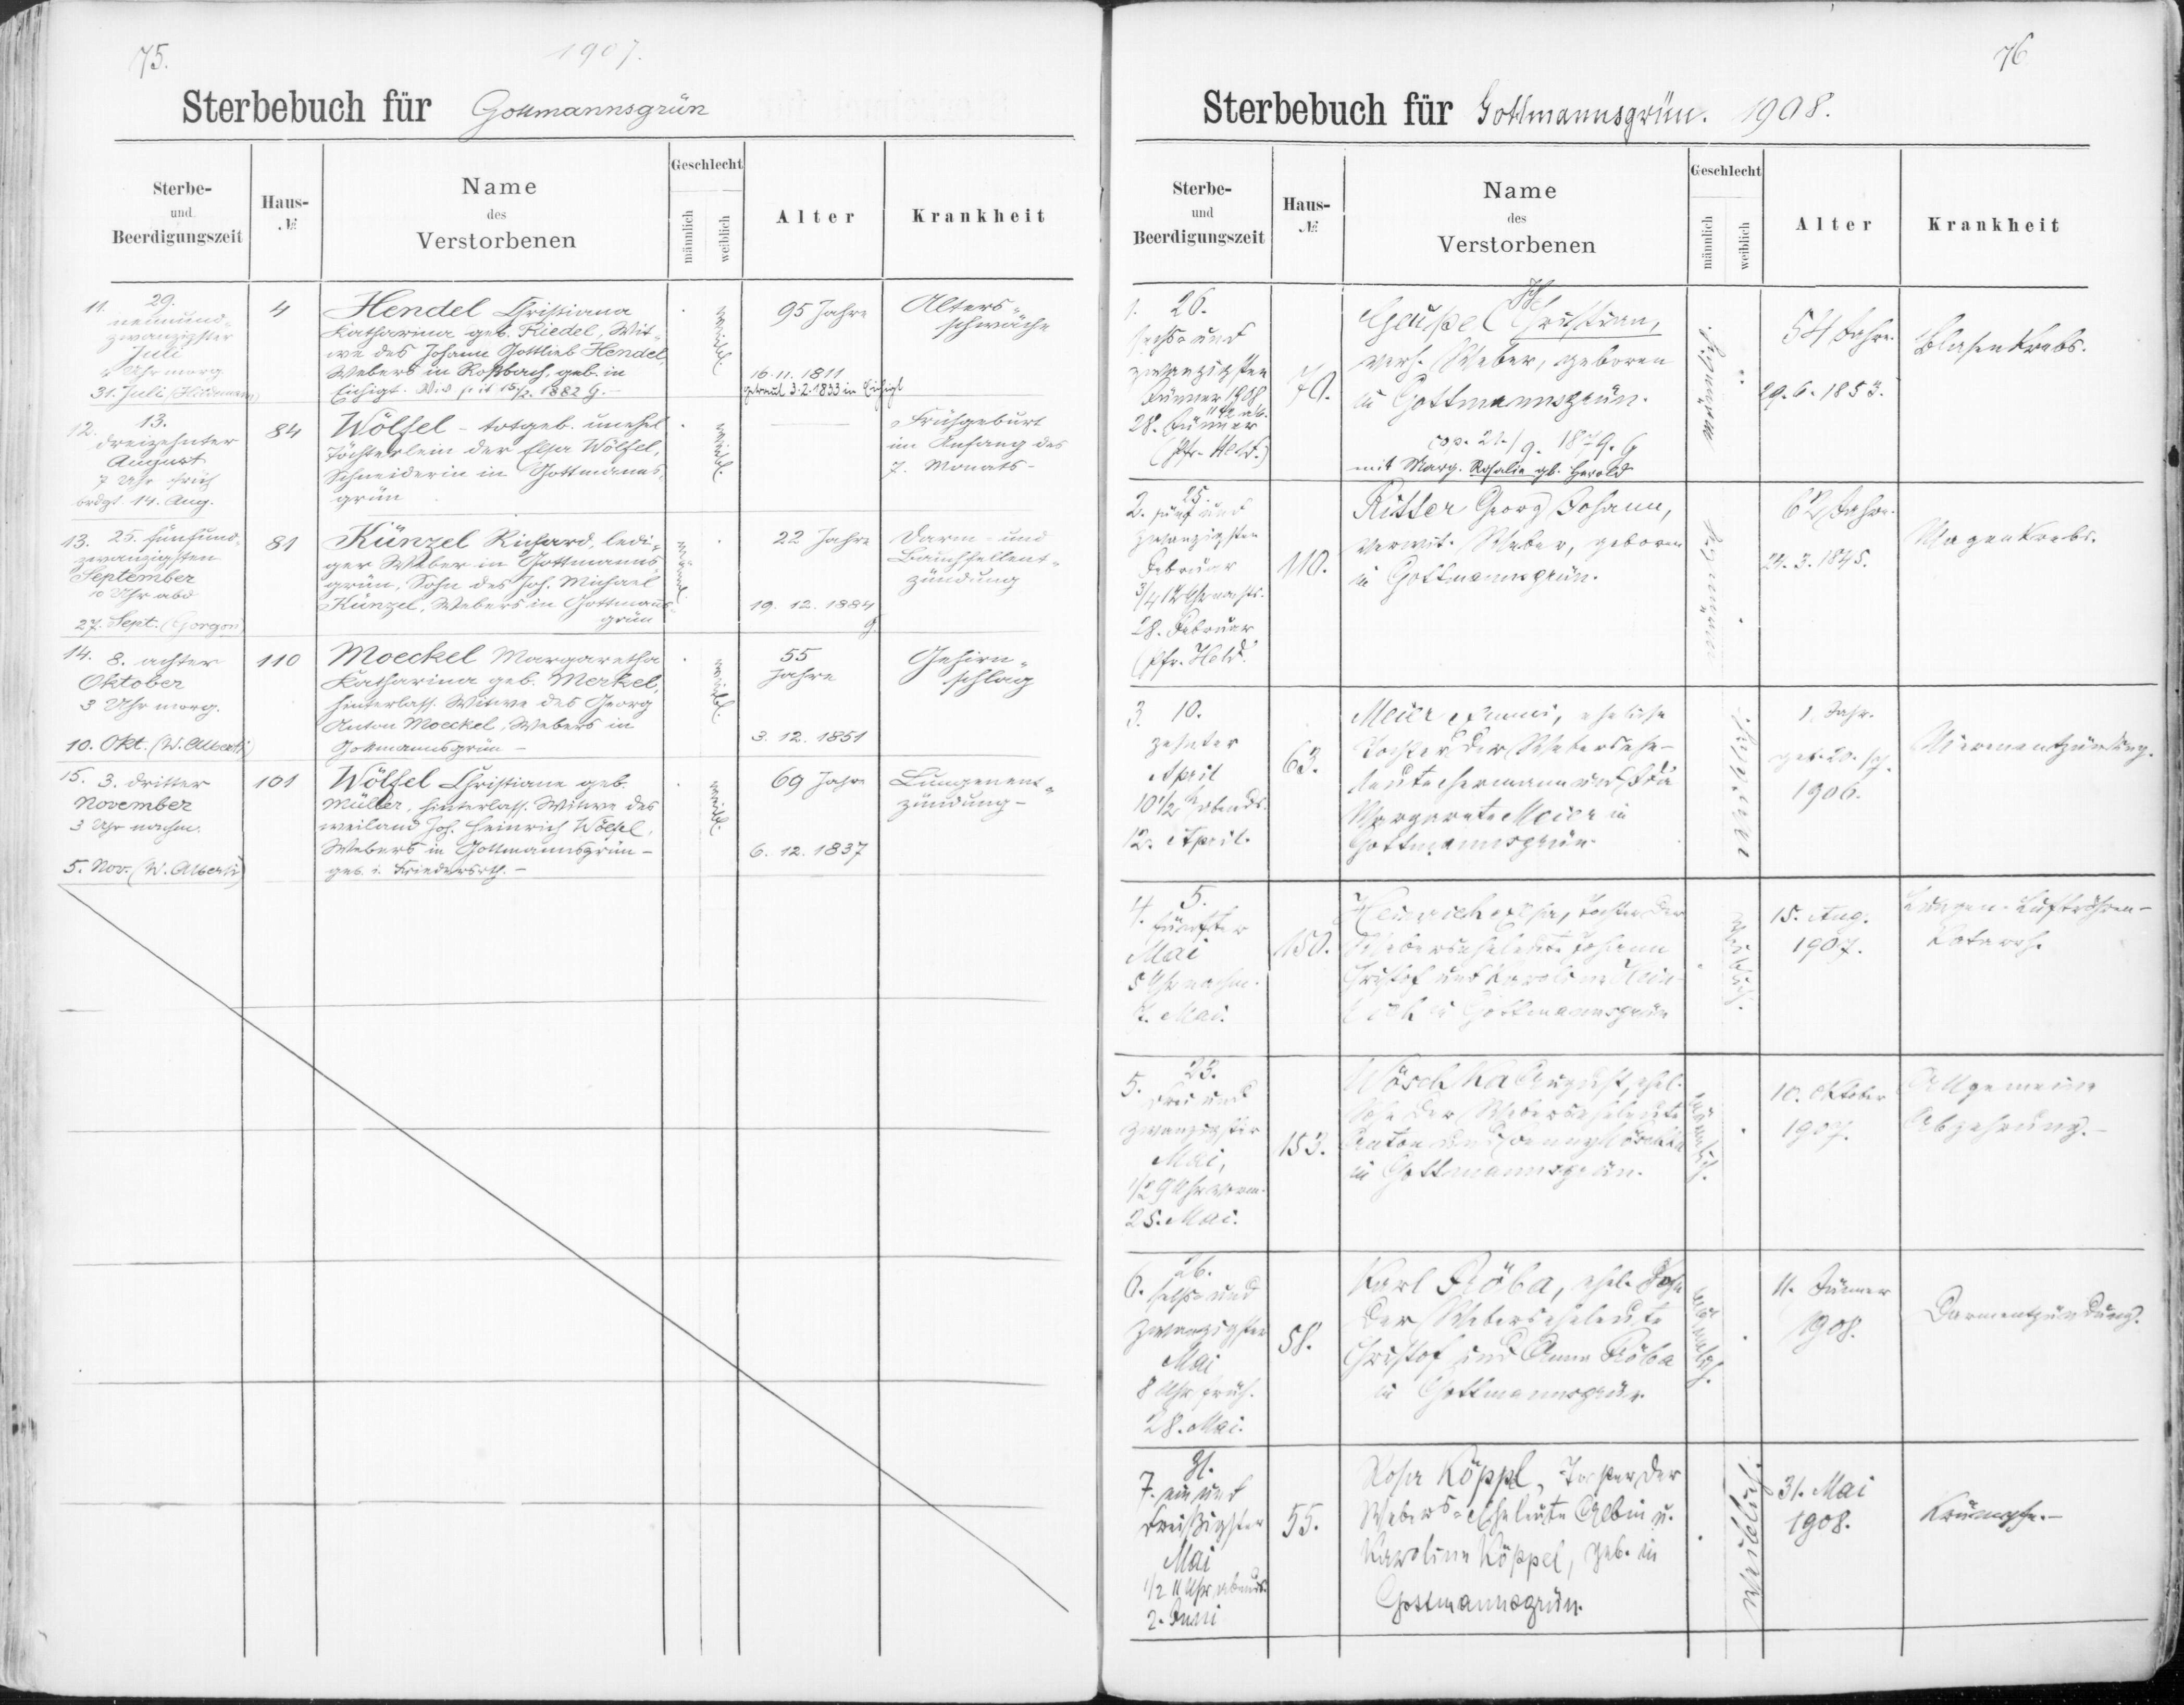 75.
1907.
Sterbebuch für Gottmannsgrün
Sterbe-
und
Beerdigungszeit
Haus-
№
Name
des
Verstorbenen
Geschlecht
männlich
weiblich
Alter
Krankheit
11. 29.
neunund-
zwanzigster
Juli
Uhr morg.
31. Juli
4
Hendel Christiana
Katharina geb. Riedel, Wit-
we des Johann Gottlieb Hendel,
Webers in Roßbach, geb. in
Eichigt. 1882 G.-
weibl.
95 Jahre
16.11.1811
getraut 3.2.1833 in Eichigt
Alters-
schwäche
12. 13.
dreizehnter
August
7 Uhr früh
brdgt. 14. Aug.
84
Wölfel - totgeb. unehel
Töchterlein der Elsa Wölfel,
Schneiderin in Gottmanns-
grün
weibl.
Frühgeburt
im Anfang des
7. Monats-
13. 25. fünfund-
zwanzigsten
September
10 Uhr abd
27. Sept. (Gorgon)
81
Künzel Richard, ledi-
ger Weber in Gottmanns-
grün, Sohn des Joh. Michael
Künzel, Webers in Gottmanns-
grün
männl.
22 Jahre
19. 12. 1884
G.
Darm- und
Bauchfellent-
zündung
14. 8. achter
Oktober
3 Uhr morg.
10. Okt. (W. Alberti)
110
Moeckel Margaretha
Katharina geb. Merkel,
hinterlass. Witwe des Georg
Anton Moeckel, Webers in
Gottmannsgrün -
weibl.
55
Jahre
3. 12. 1851
Gehirn-
schlag
15. 3. dritter
November
3 Uhr nachm.
5. Nov. (W. Alberti)
101
Wölfel Christiane geb.
Müller, hinterlass. Witwe des
weiland Joh. Heinrich Wölfel,
Webers in Gottmannsgrün -
geb. i. Friedersrth. -
weibl.
69 Jahre
6. 12. 1837
Lungenent-
zündung -
76
Sterbebuch für Gottmannsgrün. 1908.
Sterbe-
und
Beerdigungszeit
Haus-
№
Name
des
Verstorbenen
Geschlecht
männlich
weiblich
Alter
Krankheit
1. 26.
sechs- und
zwanzigsten
Jänner 1908
28. Jänner
(Pfr. Held.)
70.
Geußel Christian,
verh. Weber, geboren
in Gottmannsgrün.
cop. 21./9. 1879. G
mit Marg. Rosalie gb. Herold
männlich.
54 Jahre.
29. 6. 1853.
Blasenkrebs.
2. 25.
fünf und
zwanzigsten
Februar
3/4 12 Uhr nachts.
28. Februar
(Pfr. Held.
110.
Ritter Georg Johann,
verwit. Weber, geboren
in Gottmannsgrün.
männlich
62 Jahre.
24. 3. 1845.
Magenkrebs.
3. 10.
zehnter
April
10 1/2 abends.
12. April.
63.
Meier Emmi, eheliche
Tochter der Webersehe-
leute Hermann und Ida
Margareta Meier in
Gottmannsgrün.
weiblich.
1. Jahr.
geb. 20.
1906.
Nierenentzündung.
4. 5.
fünfter
Mai
5 Uhr nachm.
7. Mai.
150.
Heinrich Elsa, Tochter der
Weberseheleute Johann
Christof und Karoline Hein-
rich in Gottmannsgrün
weiblich.
15. Aug.
1907.
Lungen-Luftröhren-
Katarrh.
5. 23.
drei und
zwanzigster
Mai,
1/2 9 Uhr vorm.
25. Mai.
153.
Wöschka August, ehel.
Sohn der Weberseheleute
Anton und Wöschka
in Gottmannsgrün.
männlich.
10. Oktober
1907.
Allgemeine
Abzehrung.-
6. 26.
sechs- und
zwanzigster
Mai
8 Uhr früh.
28. Mai.
58.
Karl Röba, ehel. Sohn
der Weberseheleute
Christof und Anna Röba
in Gottmannsgrün
männlich.
11. Jänner
1908.
Darmentzündung.
7. 31.
ein und
dreißigster
Mai
1/2 11 Uhr abends.
2. Juni
55.
Rosa Köppel, Tochter der
Webers-Eheleute Albin u.
Karoline Köppel, geb. in
Gottmannsgrün.
weiblich.
31. Mai
1908.
Krämpfe.-